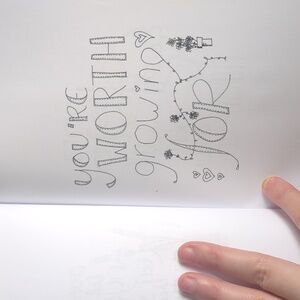 YOU'RE
WORTH
growing
FOR